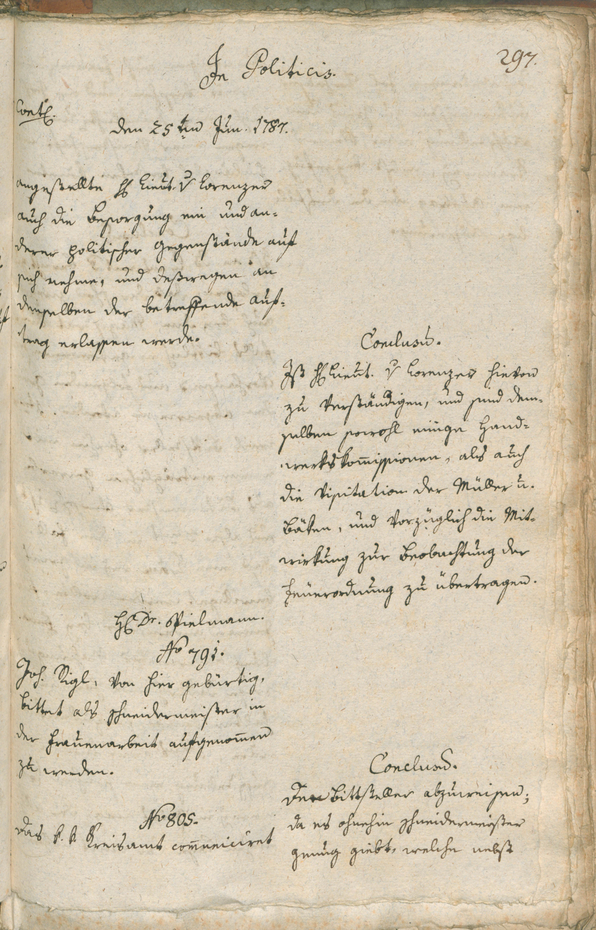 In Politicis.
297.
Cont.
den 25ten Jun. 1787.
angestellte H. Lieut. v Lorenzer
auch die Besorgung ein und an-
derer politischer Gegenstände auf
sich nehme, und deßwegen an
denselben der betreffende Auf-
trag erlassen werde.
Conclusũ.
Ist H. Lieut. v Lorenzer hievon
zu verständigen, und sind dem-
selben sowohl einige Hand-
werkskom̄issionen, als auch
die Visitation der Müller u.
Bäken, und vorzüglich die Mit-
wirkung zur Beobachtung der
Feuerordnung zu übertragen.
H. Dr. Spielmann.
No 791.
Joh. Rigl, von hier gebürtig,
bittet als Schneidermeister in
der Frauenarbeit aufgenom̄en
zu werden.
Conclusũ.
Der Bittsteller abzuweisen;
da es ohnehin Schneidermeister
genug giebt, welche nebst
No 805.
Das k. k. Kreisamt com̄uniciret